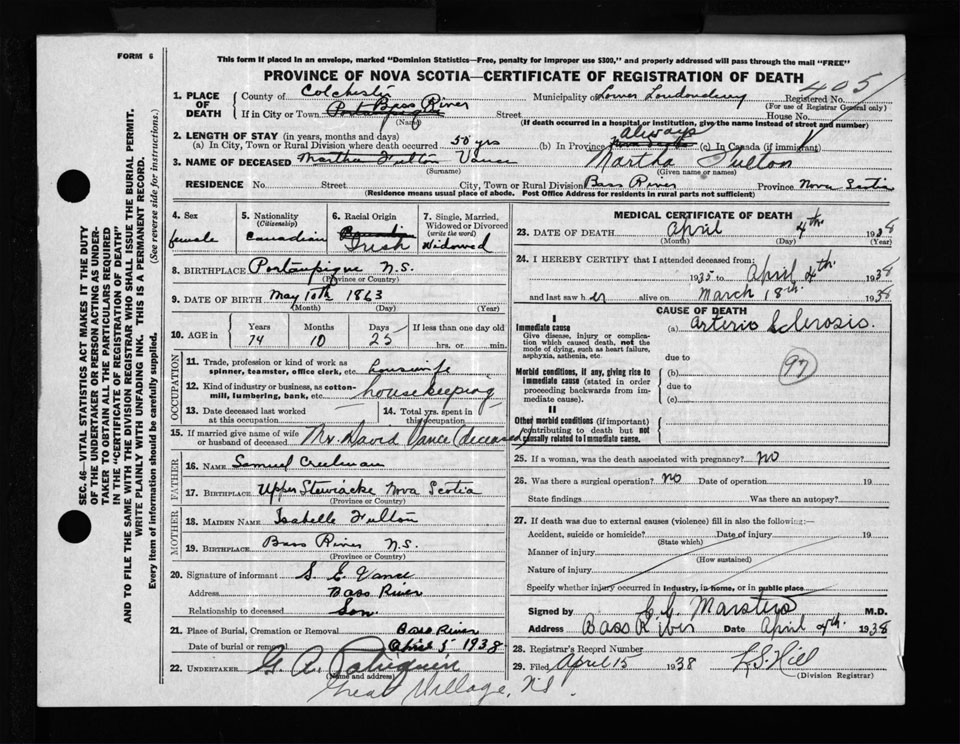 FORM 6
This form if placed in an envelope, marked "Dominion Statistics—Free, penalty for improper use $300," and properly addressed will pass through the mail "FREE"
PROVINCE OF NOVA SCOTIA—CERTIFICATE OF REGISTRATION OF DEATH
405
SEC. 46—VITAL STATISTICS ACT MAKES IT THE DUTY
OF THE UNDERTAKER OR PERSON ACTING AS UNDER-
TAKER TO OBTAIN ALL THE PARTICULARS REQUIRED
IN THE "CERTIFICATE OF REGISTRATION OF DEATH"
AND TO FILE THE SAME WITH THE DIVISION REGISTRAR WHO SHALL ISSUE THE BURIAL PERMIT.
WRITE PLAINLY WITH UNFADING INK. THIS IS A PERMANENT RECORD.
Every item of information should be carefully supplied. (See reverse side for instructions.)
1. PLACE OF DEATH
County of Colchester Municipality of Lower Londonderry Registered No.
(For use of Registrar General only)
If in City or Town Bass River Street House No.
(Name) (If death occurred in a hospital or institution, give the name instead of street and number)
2. LENGTH OF STAY (in years, months and days)
(a) In City, Town or Rural Division where death occurred 50 yrs (b) In Province always (c) In Canada (if immigrant)
3. NAME OF DECEASED Martha Fulton Vance Martha Fulton
(Surname) (Given name or names)
RESIDENCE No. Street City, Town or Rural Division Bass River Province Nova Scotia
(Residence means usual place of abode. Post Office Address for residents in rural parts not sufficient)
4. Sex female
5. Nationality (Citizenship) Canadian
6. Racial Origin Irish
7. Single, Married, Widowed or Divorced (write the word) Widowed
8. BIRTHPLACE Portaupique N.S.
(Province or Country)
9. DATE OF BIRTH May 10th 1863
(Month) (Day) (Year)
10. AGE in Years 74 Months 10 Days 25 If less than one day old hrs. or min.
OCCUPATION
11. Trade, profession or kind of work as spinner, teamster, office clerk, etc. housewife
12. Kind of industry or business, as cotton-mill, lumbering, bank, etc. housekeeping
13. Date deceased last worked at this occupation
14. Total yrs. spent in this occupation
15. If married give name of wife or husband of deceased Mr. David Vance (deceased)
FATHER
16. NAME Samuel Creelman
17. BIRTHPLACE Upper Stewiacke Nova Scotia
(Province or Country)
MOTHER
18. MAIDEN NAME Isabelle Fulton
19. BIRTHPLACE Bass River N.S.
(Province or Country)
20. Signature of informant S. E. Vance
Address Bass River
Relationship to deceased Son
21. Place of Burial, Cremation or Removal Bass River
Date of burial or removal April 5 1938
22. UNDERTAKER G. A. Patriquin
(Name and address)
Great Village, N.S.
MEDICAL CERTIFICATE OF DEATH
23. DATE OF DEATH April 4th 1938
(Month) (Day) (Year)
24. I HEREBY CERTIFY that I attended deceased from:
1935 to April 4th. 1938
and last saw her alive on March 18th. 1938
CAUSE OF DEATH
I
Immediate cause
Give disease, injury or complication which caused death, not the mode of dying, such as heart failure, asphyxia, asthenia, etc.
(a) Arterio Sclerosis.
due to
Morbid conditions, if any, giving rise to immediate cause (stated in order proceeding backwards from immediate cause).
(b) 97
due to
(c)
II
Other morbid conditions (if important) contributing to death but not causally related to immediate cause.
25. If a woman, was the death associated with pregnancy? NO
26. Was there a surgical operation? NO Date of operation 19
State findings Was there an autopsy?
27. If death was due to external causes (violence) fill in also the following:—
Accident, suicide or homicide? Date of injury 19
(State which)
Manner of injury
(How sustained)
Nature of injury
Specify whether injury occurred in industry, in home, or in public place
Signed by Marsters M.D.
Address Bass River Date April 4th. 1938
28. Registrar's Record Number
29. Filed April 15 1938 L S. Hill
(Division Registrar)